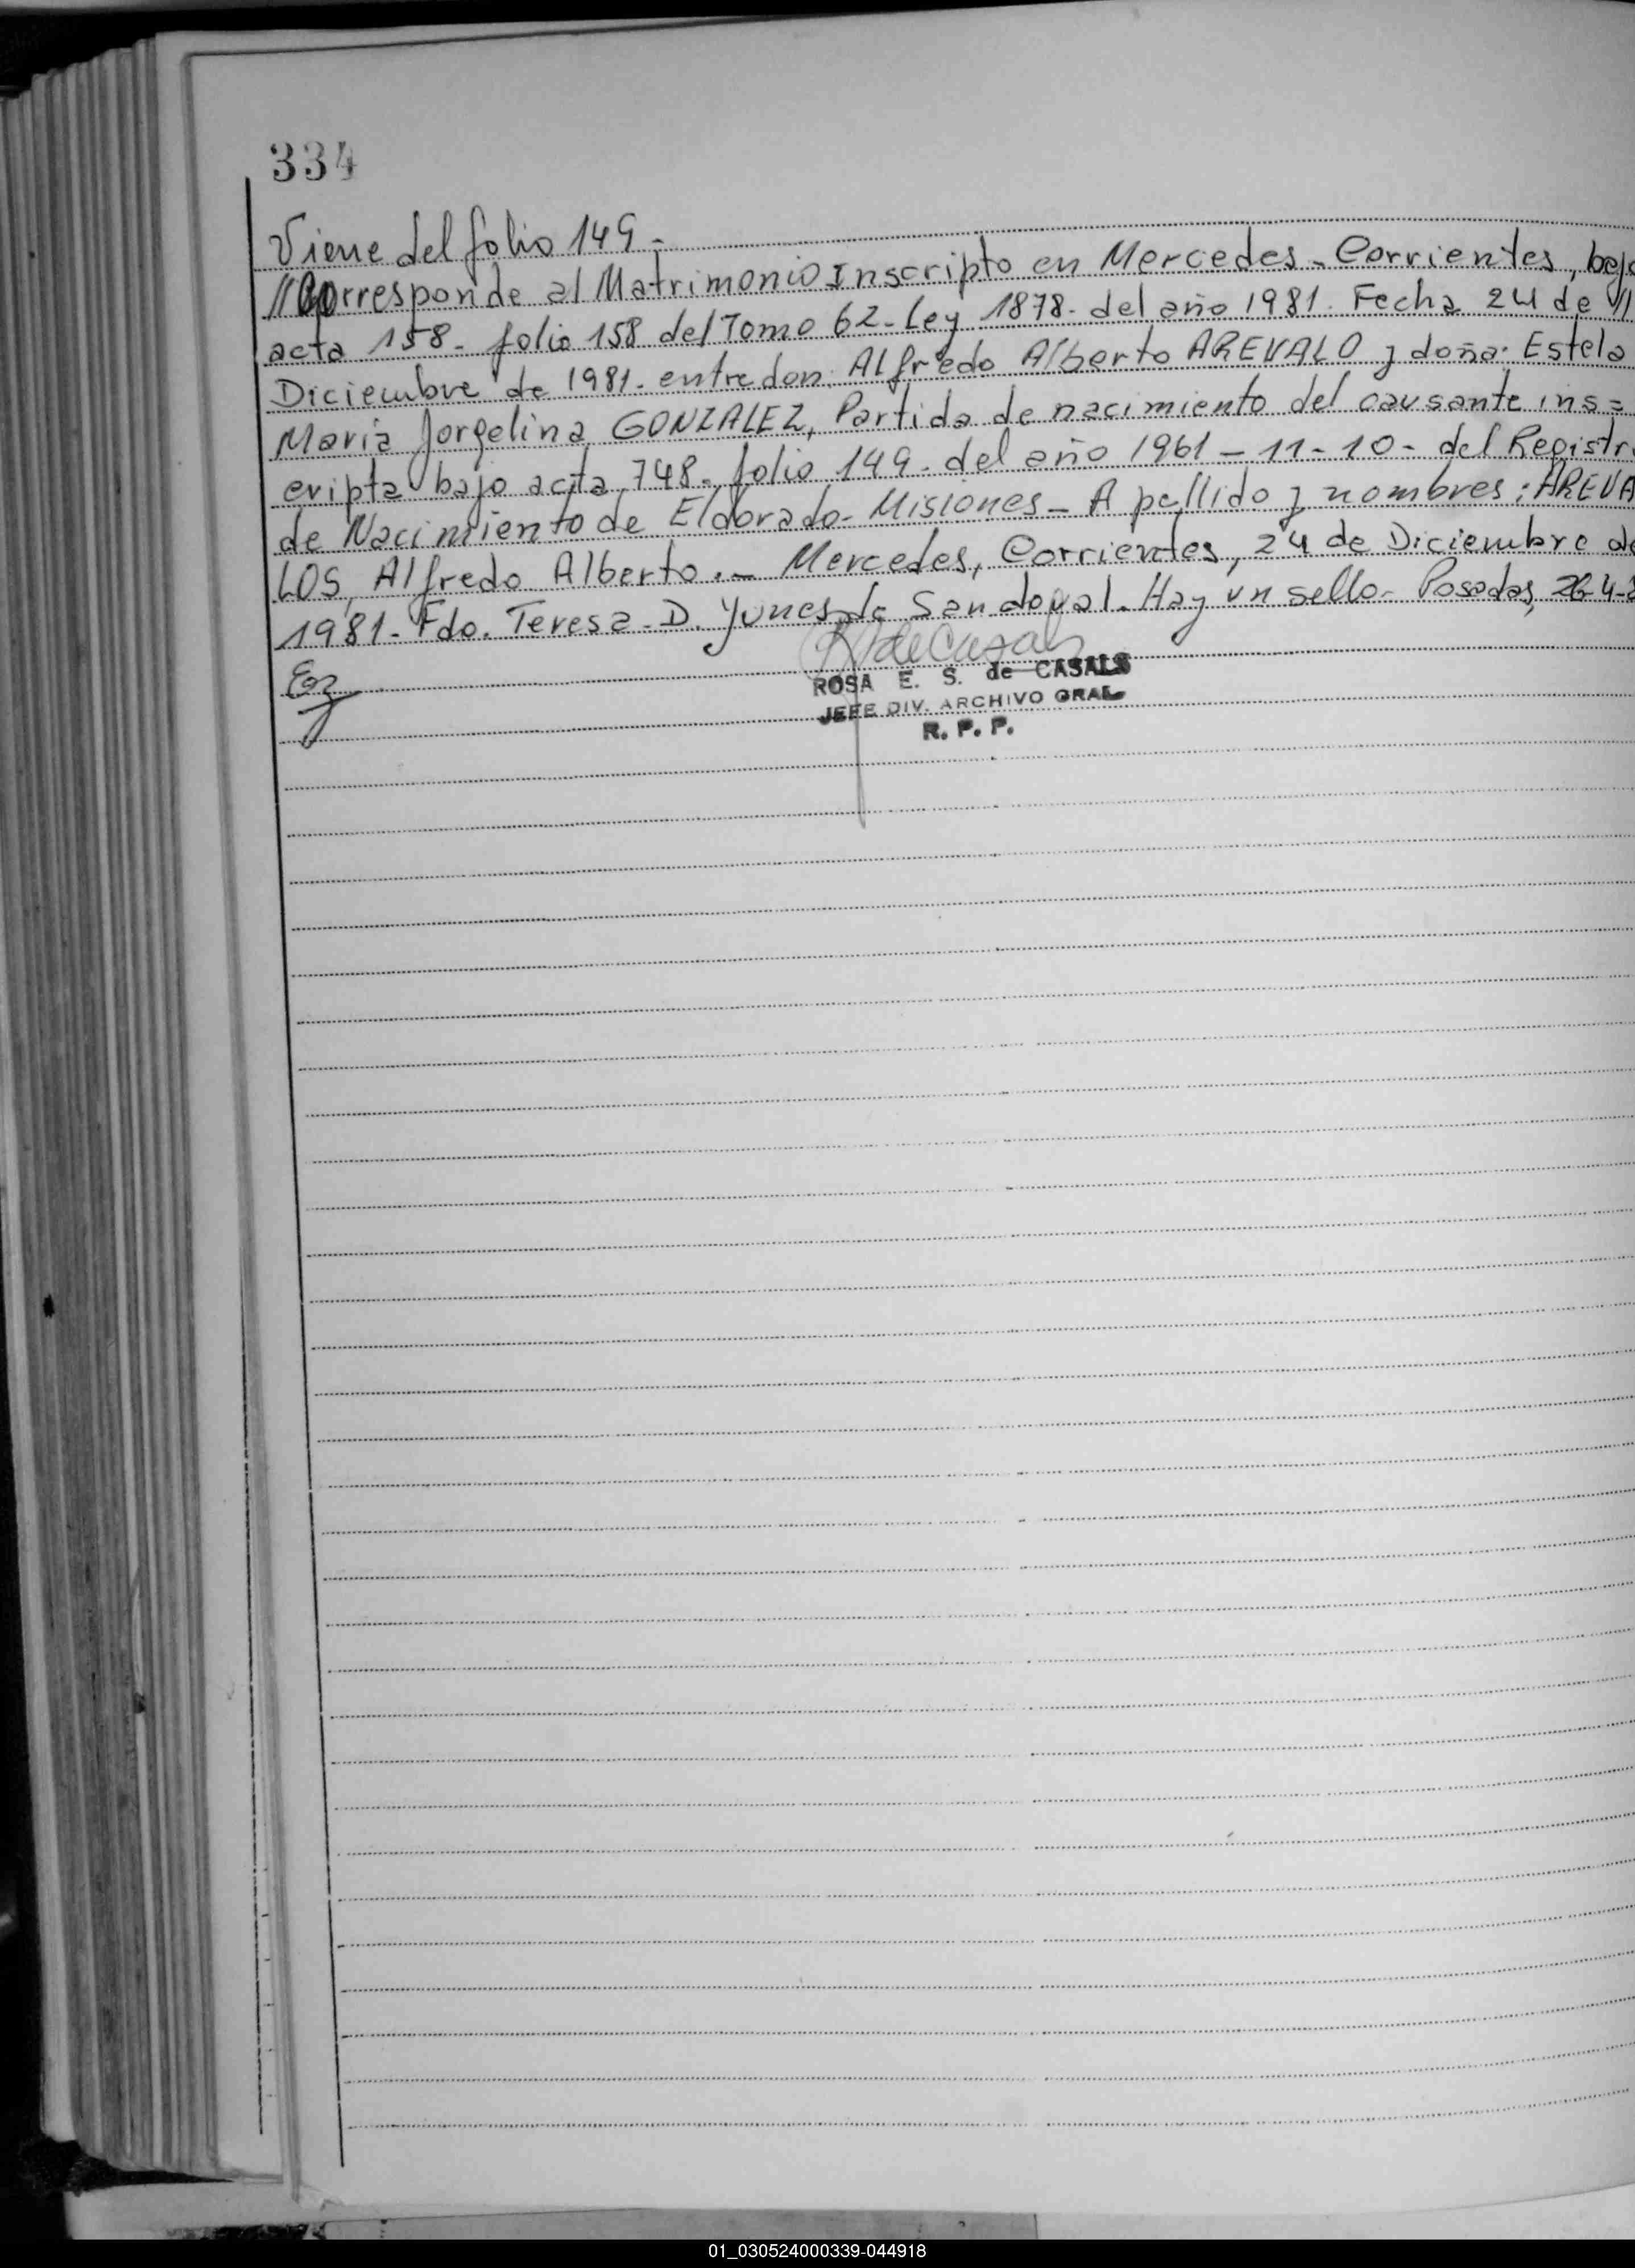 334
Viene del folio 149 -
// Corresponde al Matrimonio Inscripto en Mercedes - Corrientes, bajo
acta 158 - folio 158 del Tomo 62 - Ley 1878 - del año 1981. Fecha 24 de //
Diciembre de 1981 - entre don: Alfredo Alberto AREVALO y doña: Estela
María Jorgelina GONZALEZ, Partida de nacimiento del causante ins=
cripta bajo acta 748 - folio 149 - del año 1961 - 11 - 10 - del Registr
de Nacimiento de Eldorado - Misiones - Apellido y nombres: AREVA
LOS, Alfredo Alberto. - Mercedes, Corrientes, 24 de Diciembre de
1981 - Fdo. Teresa D. Yunes de Sandoval - Hay un sello - Posadas, 26-4-8
ROSA E. S. de CASALS
JEFE DIV. ARCHIVO GRAL
R. P. P.
01_030524000339-044918